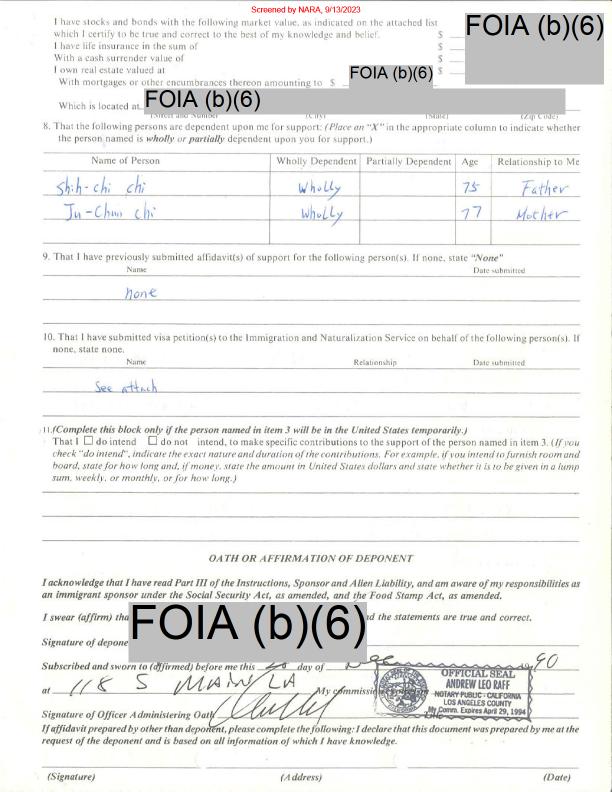 Screened by NARA, 9/13/2023
I have stocks and bonds with the following market value, as indicated on the attached list
which I certify to be true and correct to the best of my knowledge and belief. $
FOIA (b)(6)
I have life insurance in the sum of $
With a cash surrender value of $
I own real estate valued at $
With mortgages or other encumbrances thereon amounting to $ FOIA (b)(6)
Which is located at FOIA (b)(6)
(Street and Number) (City) (State) (Zip Code)
8. That the following persons are dependent upon me for support: (Place an "X" in the appropriate column to indicate whether
the person named is wholly or partially dependent upon you for support.)
Name of Person Wholly Dependent Partially Dependent Age Relationship to Me
Shih-chi chi Wholly 75 Father
Ju-Chun chi Wholly 77 Mother
9. That I have previously submitted affidavit(s) of support for the following person(s). If none, state "None"
Name Date submitted
none
10. That I have submitted visa petition(s) to the Immigration and Naturalization Service on behalf of the following person(s). If
none, state none.
Name Relationship Date submitted
See attach
11. (Complete this block only if the person named in item 3 will be in the United States temporarily.)
That I ☐ do intend ☐ do not intend, to make specific contributions to the support of the person named in item 3. (If you
check "do intend", indicate the exact nature and duration of the contributions. For example, if you intend to furnish room and
board, state for how long and, if money, state the amount in United States dollars and state whether it is to be given in a lump
sum, weekly, or monthly, or for how long.)
OATH OR AFFIRMATION OF DEPONENT
I acknowledge that I have read Part III of the Instructions, Sponsor and Alien Liability, and am aware of my responsibilities as
an immigrant sponsor under the Social Security Act, as amended, and the Food Stamp Act, as amended.
I swear (affirm) tha FOIA (b)(6) d the statements are true and correct.
Signature of depone
Subscribed and sworn to (affirmed) before me this day of Dec 90
at 118 S MAIN LA My commission
OFFICIAL SEAL
ANDREW LEO RAFF
NOTARY PUBLIC - CALIFORNIA
LOS ANGELES COUNTY
My Comm. Expires April 29, 1994
Signature of Officer Administering Oath
If affidavit prepared by other than deponent, please complete the following: I declare that this document was prepared by me at the
request of the deponent and is based on all information of which I have knowledge.
(Signature) (Address) (Date)